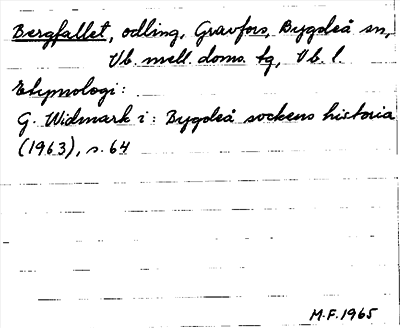 Bergfallet, odling, Gravfors, Bygdeå sn,
Vb. mell. doms. tg, Vb. l.
Etymologi:
G. Widmark i: Bygdeå sockens historia
(1963), s. 64
M.F. 1965